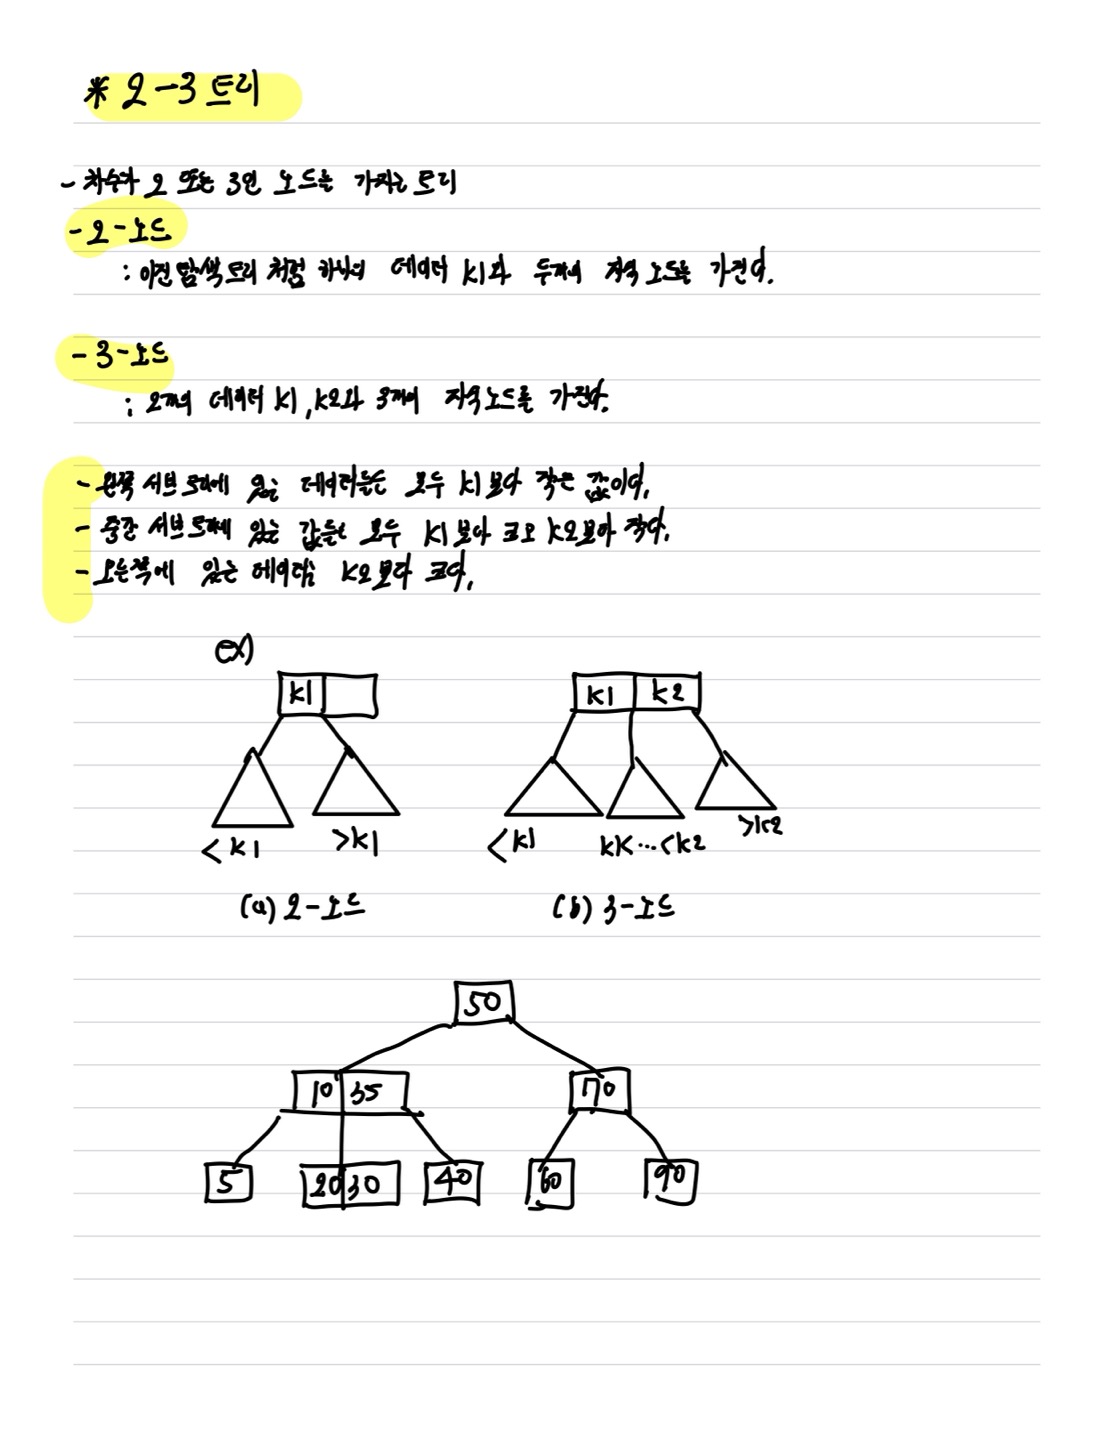 * 2-3 트리
- 차수가 2 또는 3인 노드를 가지는 트리
- 2-노드
: 이진 탐색 트리 처럼 하나의 데이터 k1과 두개의 자식 노드를 가진다.
- 3-노드
: 2개의 데이터 k1, k2과 3개의 자식노드를 가진다.
- 왼쪽 서브 트리에 있는 데이터들은 모두 k1보다 작은 값이다.
- 중간 서브 트리에 있는 값들은 모두 k1보다 크고 k2보다 작다.
- 오른쪽에 있는 데이터는 k2보다 크다.
ex)
k1 k1 k2
<k1 >k1 <k1 kK...<k2 >k2
(a) 2-노드 (b) 3-노드
50
10 35 70
5 20 30 40 60 90